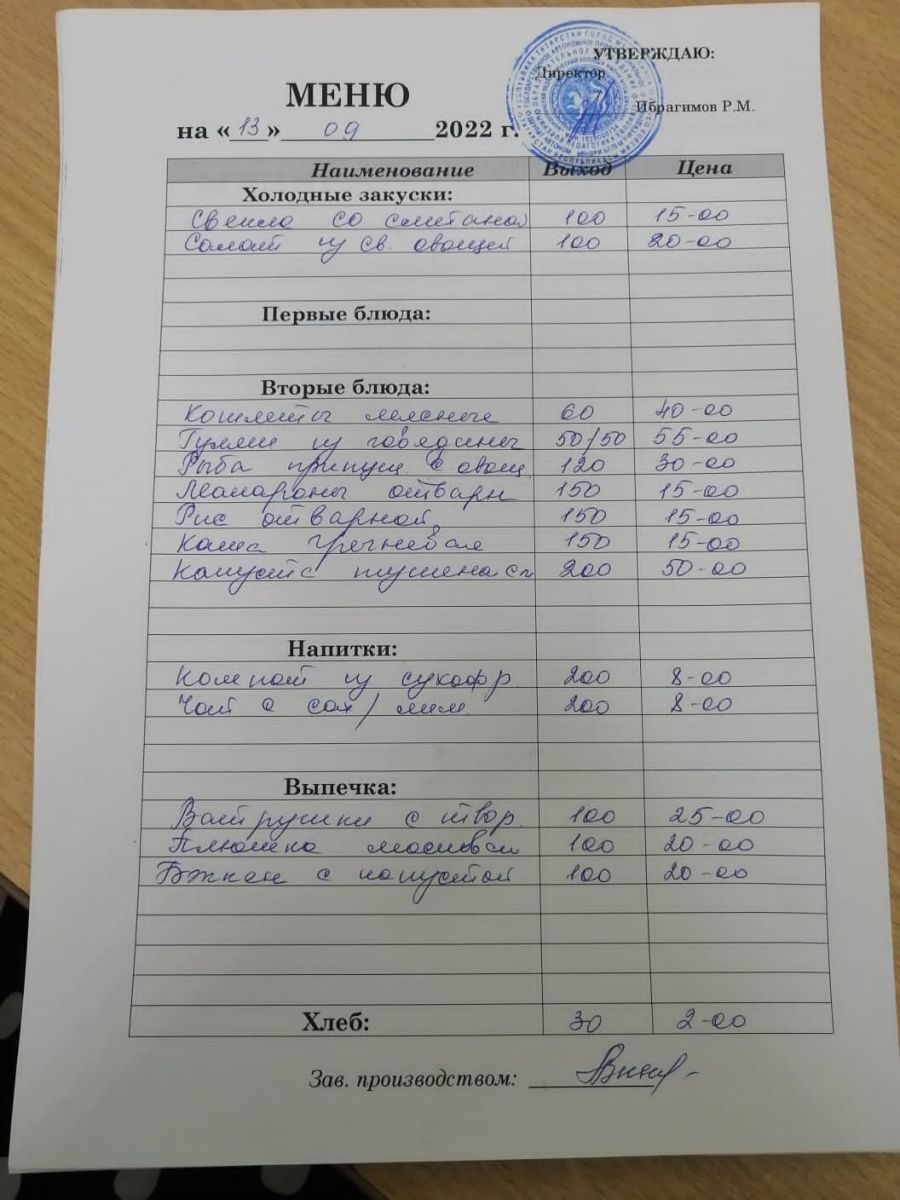 УТВЕРЖДАЮ:
Директор
МЕНЮ
Ибрагимов Р.М.
на «13» 09 2022 г.
Наименование Выход Цена
Холодные закуски:
Свекла со сметаной 100 15-00
Салат из св. овощей 100 20-00
Первые блюда:
Вторые блюда:
Котлеты мясные 60 40-00
Гуляш из говядины 50/50 55-00
Рыба припущ. с овощ 120 30-00
Макароны отварн 150 15-00
Рис отварной 150 15-00
Каша гречневая 150 15-00
Капуста тушеная 200 50-00
Напитки:
Компот из сухофр. 200 8-00
Чай с сах/лим. 200 8-00
Выпечка:
Ватрушки с твор. 100 25-00
Плюшка московск 100 20-00
Бэккен с капустой 100 20-00
Хлеб: 30 2-00
Зав. производством: